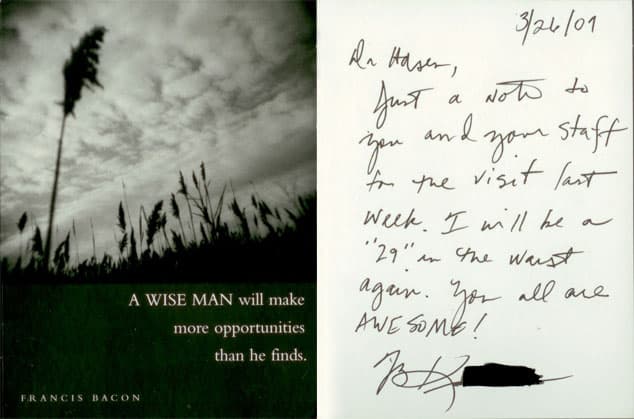 A WISE MAN will make
more opportunities
than he finds.
FRANCIS BACON
3/26/09
Dr Hasen,
Just a note to
you and your staff
for the visit last
week. I will be a
"29" in the waist
again. You all are
AWESOME!